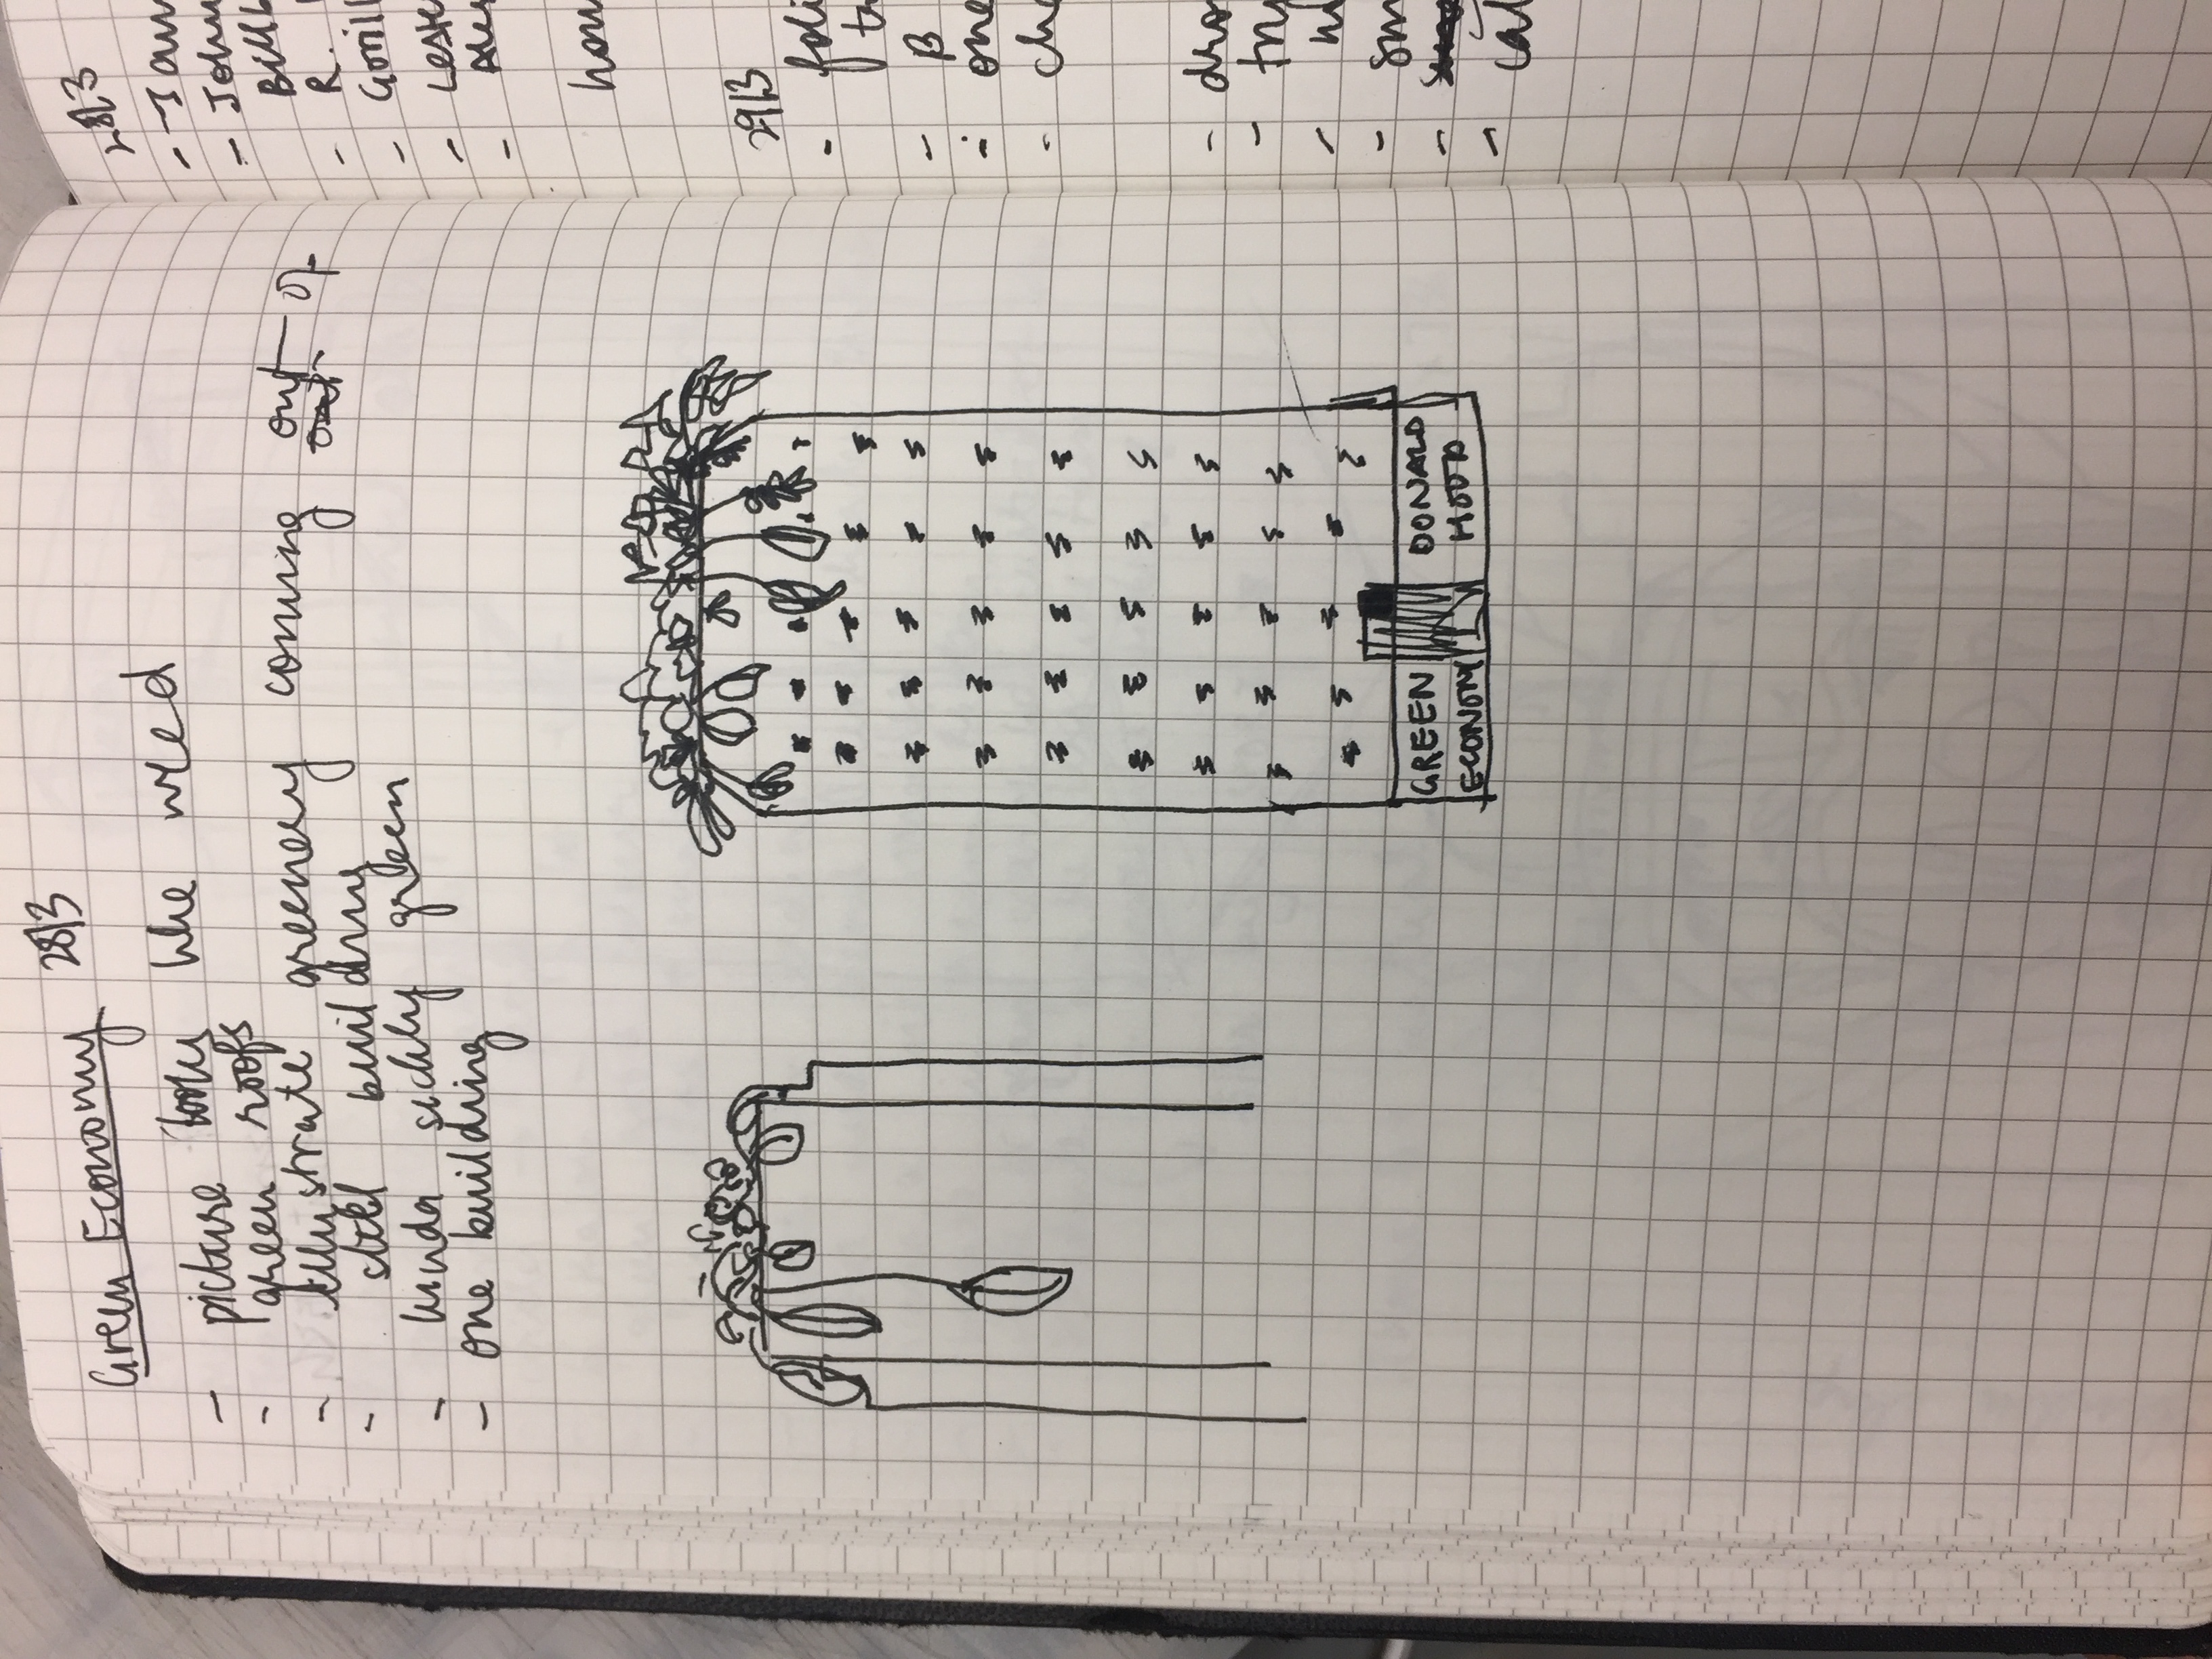 Green Economy 28/3
- picture looks like weed
- green roofs
- illustrate greenery coming out of
- building
- kinda sickly green
- one building
GREEN
ECONOMY
DONALD
HOOD
28/3
-
- John
Billb
- R.
- Gorill
- Leste
-
29/3
- foli
- β
- one
- che
- dro
- try
-
- sm
-
-